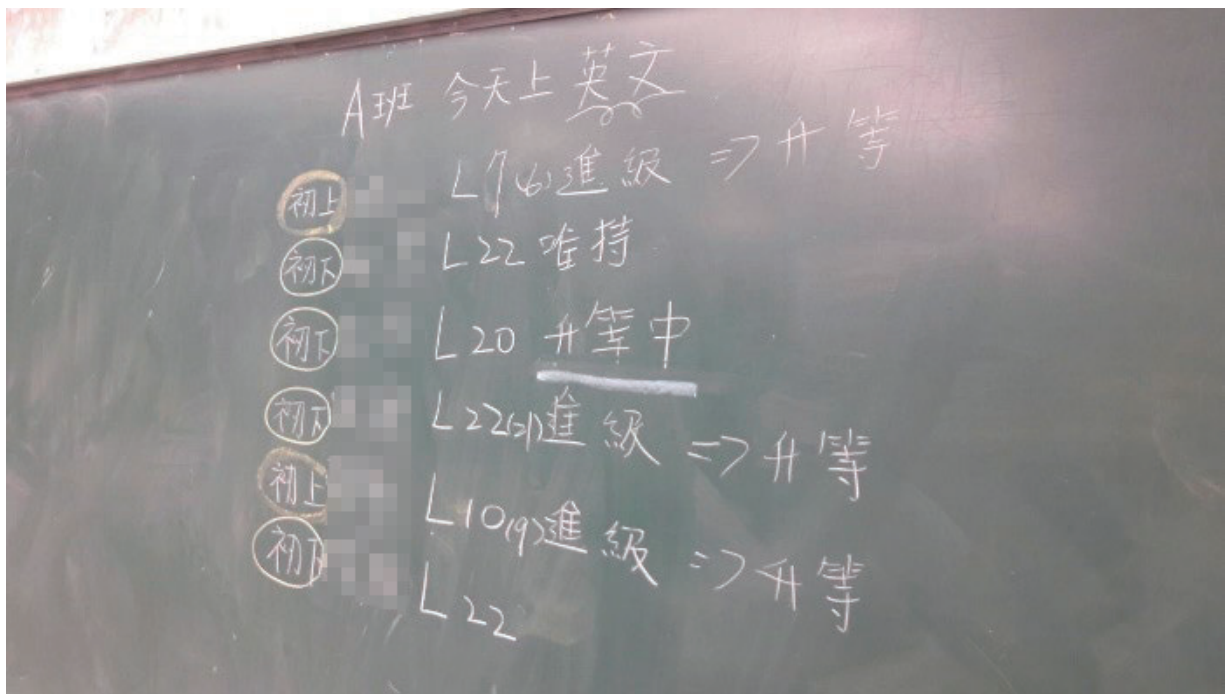 A班 今天上英文
初上 L7(6)進級 => 升等
初下 L22 唯持
初下 L20 升等中
初下 L22(21)進級 => 升等
初上 L10(9)進級 => 升等
初下 L22